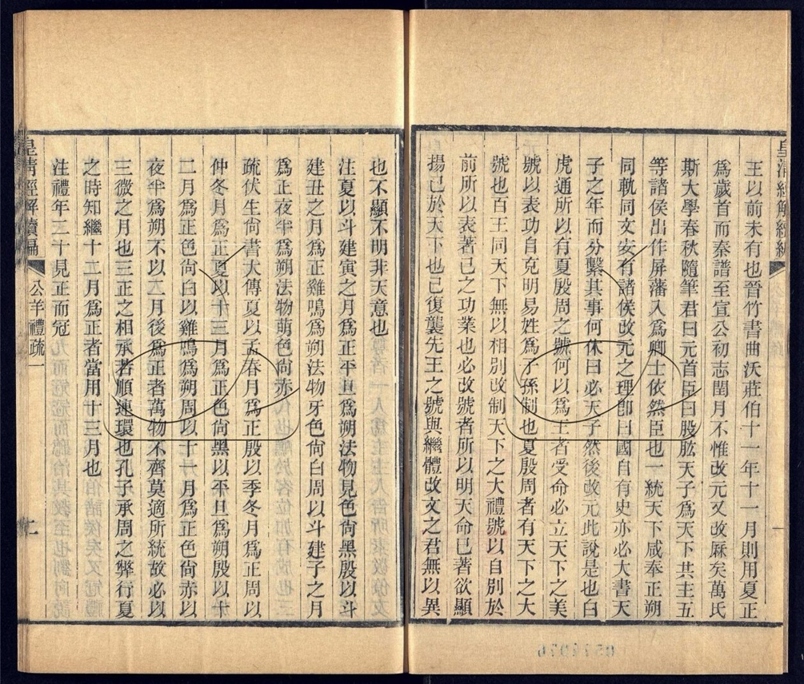 皇清經解續編
王以前未有也晉竹書曲沃莊伯十一年十一月則用夏正
爲歲首而秦譜至宣公初志閏月不惟改元又改厤矣萬氏
斯大學春秋隨筆君曰元首臣曰股肱天子爲天下共主五
等諸侯出作屏藩入爲卿士依然臣也一統天下咸奉正朔
同軌同文安有諸侯改元之理卽曰國自有史亦必大書天
子之年而分繫其事何休曰必天子然後改元此說是也白
虎通所以有夏殷周之號何以爲王者受命必立天下之美
號以表功自克明易姓爲子孫制也夏殷周者有天下之大
號也百王同天下無以相別改制天下之大禮號以自別於
前所以表著己之功業也必改號者所以明天命已著欲顯
揚己於天下也己復襲先王之號與繼體改文之君無以異
也不顯不明非天意也
注夏以斗建寅之月爲正平旦爲朔法物見色尙黑殷以斗
建丑之月爲正雞鳴爲朔法物牙色尙白周以斗建子之月
爲正夜半爲朔法物萌色尙赤
疏伏生尙書大傳夏以孟春月爲正殷以季冬月爲正周以
仲冬月爲正夏以十三月爲正色尙黑以平旦爲朔殷以十
二月爲正色尙白以雞鳴爲朔周以十一月爲正色尙赤以
夜半爲朔不以二月後爲正者萬物不齊莫適所統故必以
三微之月也三正之相承若順連環也孔子承周之弊行夏
之時知繼十二月爲正者當用十三月也
注禮年二十見正而冠
皇清經解續編
公羊禮疏一
二
0574976